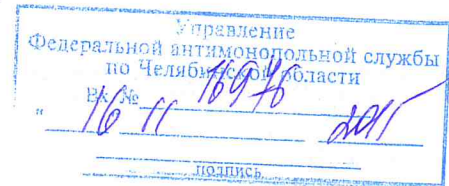 Управление
Федеральной антимонопольной службы
по Челябинской области
Вх. № 16976
" 16 11 2015
подпись